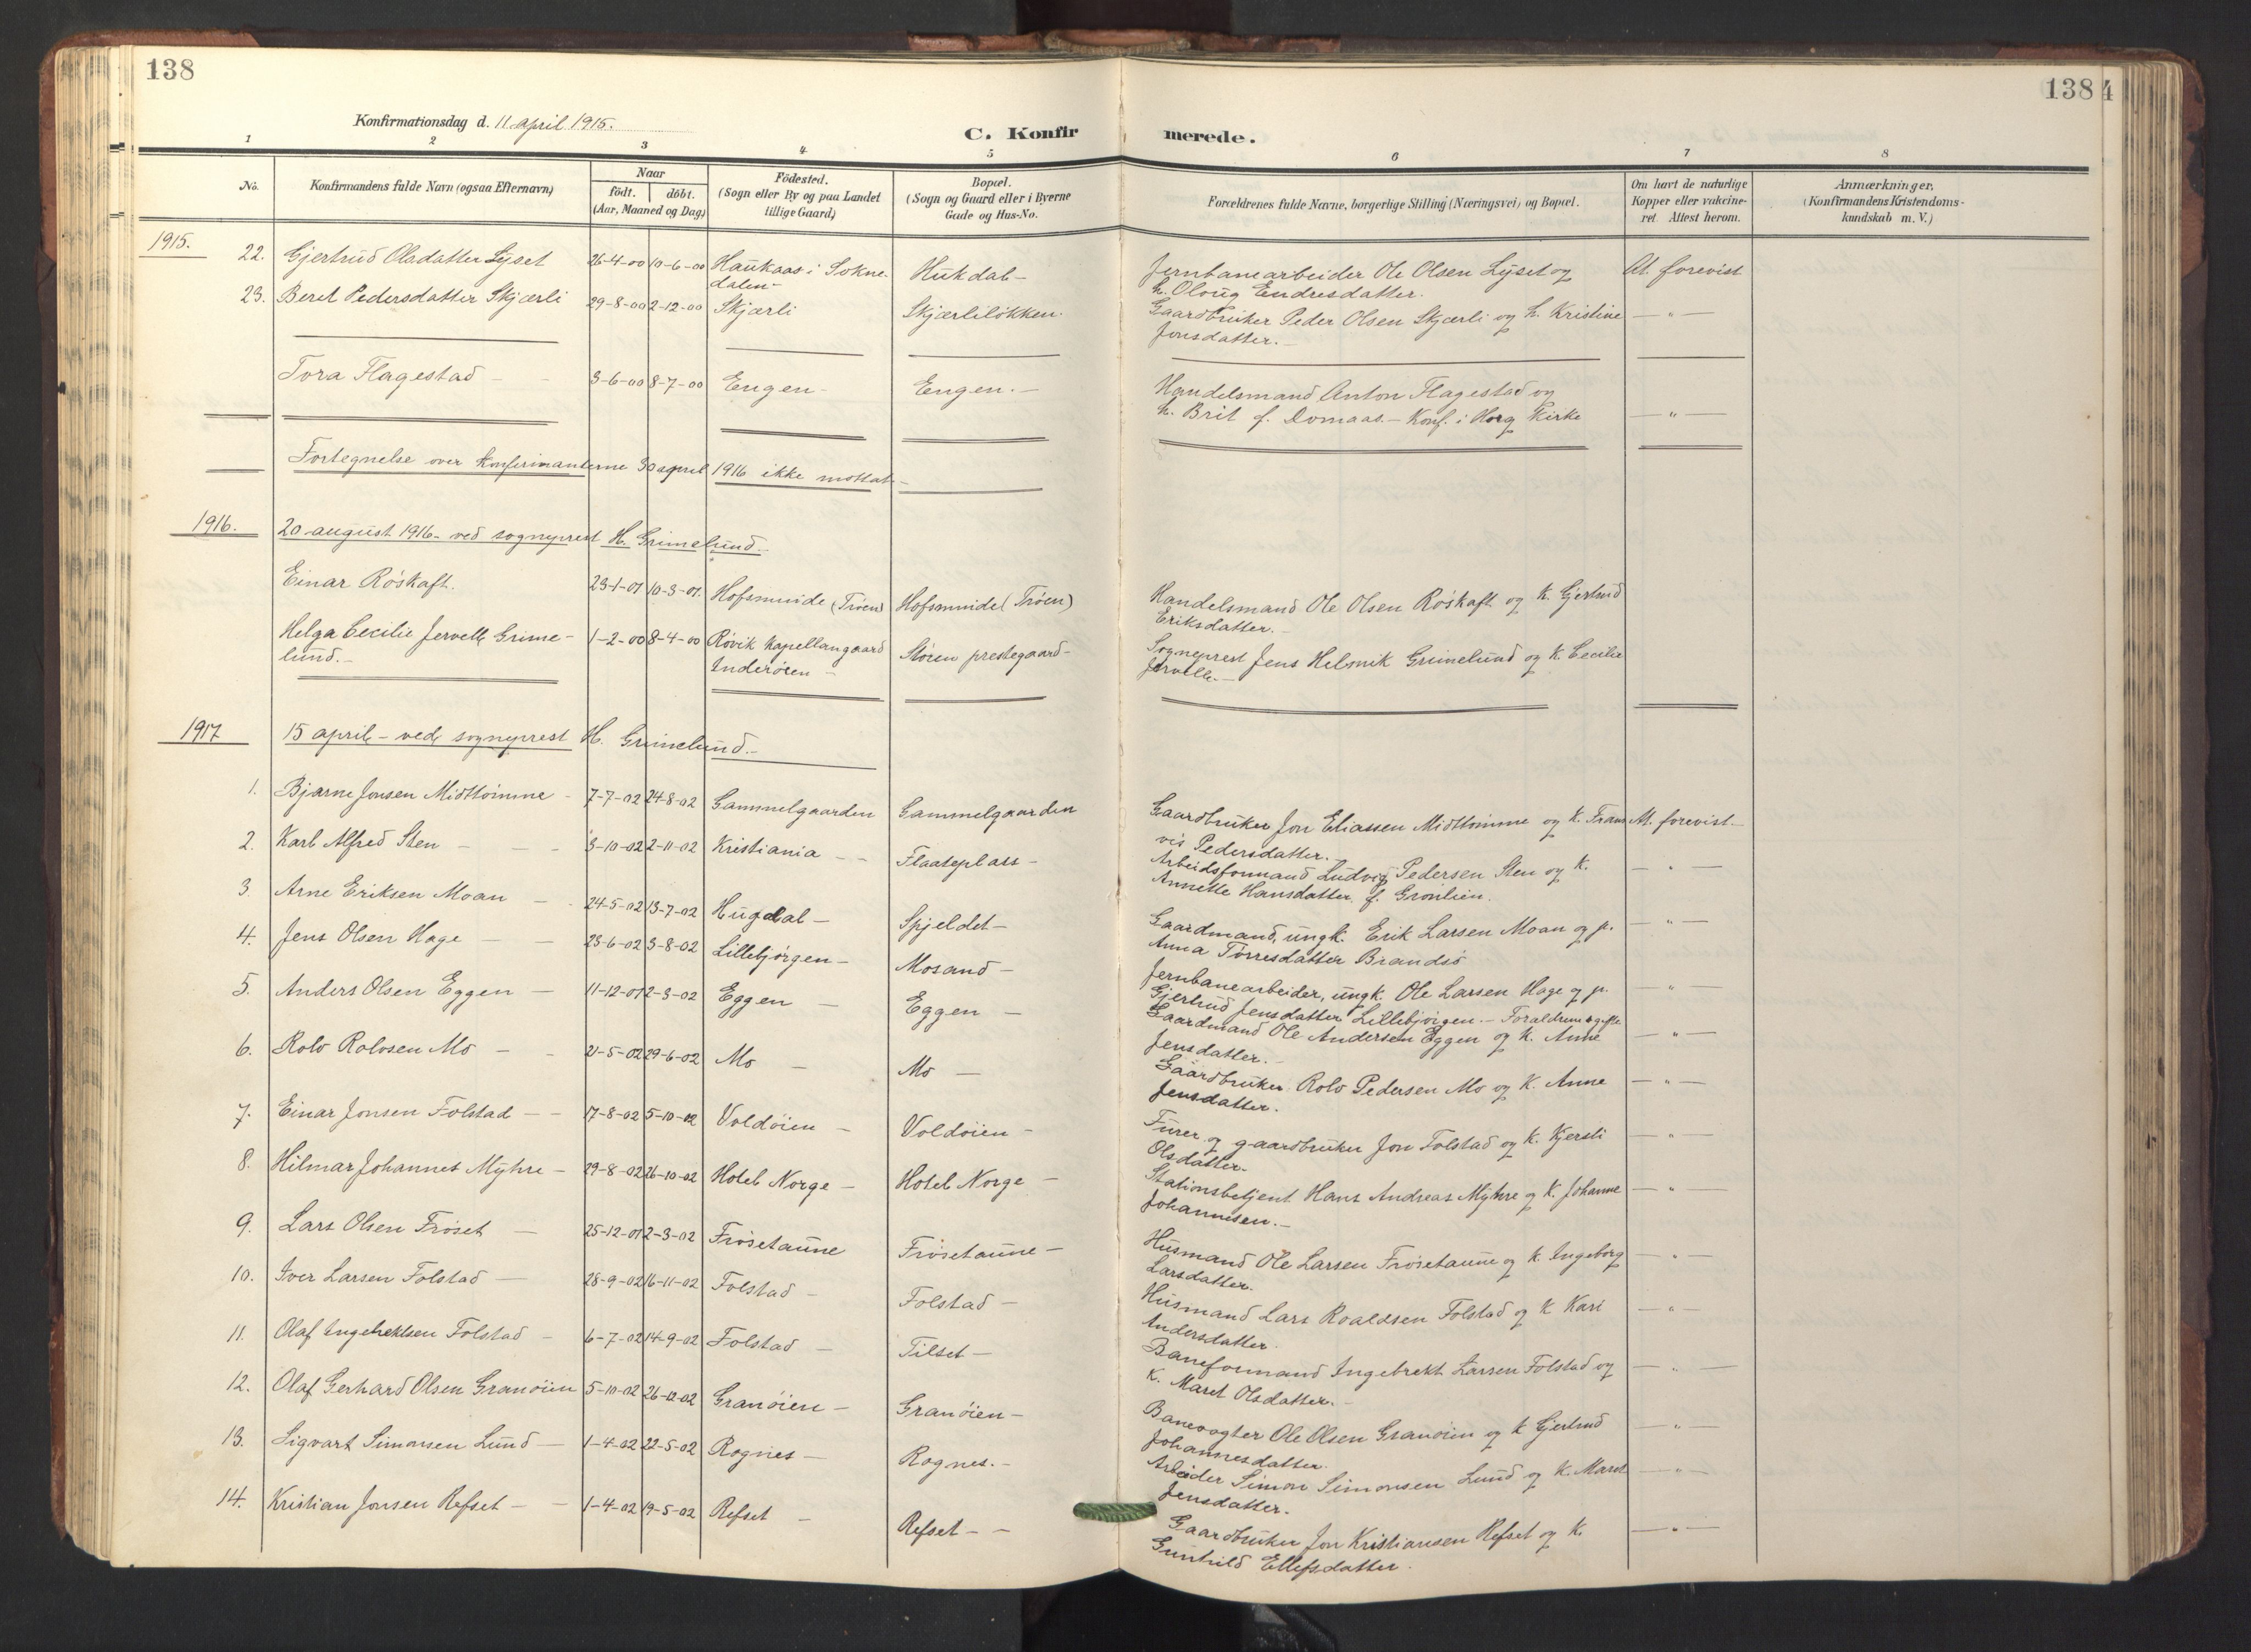 138
1384
Konfirmationsdag d. 11 april 1915.
C. Konfirmerede.
1 2 3 4 5 6 7 8
No.
Konfirmandens fulde Navn (ogsaa Efternavn)
Naar
födt. döbt.
(Aar, Maaned og Dag)
Födested.
(Sogn eller By og paa Landet
tillige Gaard)
Bopæl.
(Sogn og Gaard eller i Byerne
Gade og Hus-No.
Forældrenes fulde Navne, borgerlige Stilling (Næringsvei) og Bopæl.
Om havt de naturlige
Kopper eller vakcine-
ret Attest herom.
Anmærkninger.
(Konfirmandens Kristendoms-
kundskab m. V.)
1915.
22. Gjertrud Olsdatter Lyset 26-4-00 10-6-00 Haukaas i Sokne- Hukdal - Jernbanearbeider Ole Olsen Lyset og At. forevist
dalen - h. Oloug Endresdatter.
23. Beret Pedersdatter Skjærli 29-8-00 2-12-00 Skjærli Skjærliløkken. Gaardbruker Peder Olsen Skjærli og h. Kristine — " —
Jonsdatter. -
Tora Flagestad - - 3-6-00 8-7-00 Engen - Engen. - Handelsmand Anton Flagestad og
h. Brit f. Domaas. - Konf. i Horg Kirke — " —
Fortegnelse over konfirmanterne 30 april 1916 ikke mottat -
1916. 20 august 1916 - ved sogneprest H. Grimelund. -
Einar Røskaft. 23-1-01 10-3-01. Hofsmuide (Trøen) Hofsmuide (Trøen) Handelsmand Ole Olsen Røskaft og k. Gjertrud
Eriksdatter. -
Helga Cecilie Jervelle Grime- 1-2-00 8-4-00 Røvik Kapellangaard Støren prestegaard - Sogneprest Jens Helmik Grimelund og k. Cecilie
lund. - Inderøen - Jervelle. -
1917 15 april - ved sogneprest H. Grimelund. -
1. Bjarne Jonsen Midttømme - 7-7-02 24-8-02 Gammelgaarden Gammelgaarden Gaardbruker Jon Eliassen Midttømme og k. Fran At. forevist -
vis Pedersdatter. -
2. Karl Alfred Sten - - - 3-10-02 2-11-02 Kristiania - - Flaateplass - Arbeidsformand Ludvig Pedersen Sten og k. — " —
Annette Hansdatter f. Grønlien.
3. Arne Eriksen Moan - - 24-5-02 13-7-02 Hugdal - Spjeldet - Gaardmand, ungk. Erik Larsen Moan og p. — " —
Anna Tørresdatter Brandsø
4. Jens Olsen Hage - - 23-6-02 3-8-02 Lillebjørgen - Mosand - Jernbanearbeider, ungk. Ole Larsen Hage og p. — " —
Gjertrud Jensdatter Lillebjørgen. - Forældrene gifte
5. Anders Olsen Eggen - 11-12-01 2-3-02 Eggen - Eggen - Gaardmand Ole Andersen Eggen og k. Anne — " —
Jensdatter. -
6. Rolv Rolvsen Mo - - 21-5-02 29-6-02 Mo - Mo - Gaardbruker Rolv Pedersen Mo og k. Anne — " —
Jensdatter.
7. Einar Jonsen Folstad - - 17-8-02 5-10-02 Voldøien - Voldøien - Furer og gaardbruker Jon Folstad og k. Kjersti — " —
Olsdatter -
8. Hilmar Johannes Myhre - 29-8-02 26-10-02 Hotel Norge - Hotel Norge - Stationsbetjent Hans Andreas Myhre og k. Johanne — " —
Johannesen. -
9. Lars Olsen Frøset - 25-12-01 2-3-02 Frøsetaune Frøsetaune - Husmand Ole Larsen Frøsetaune og k. Ingeborg — " —
Larsdatter.
10. Iver Larsen Folstad - 28-9-02 16-11-02 Folstad - Folstad - Husmand Lars Roaldsen Folstad og k Kari — " —
Andersdatter.
11. Olaf Ingebrektsen Folstad - 6-7-02 14-9-02 Folstad - Tilset - Baneformand Ingebrekt Larsen Folstad og — " —
k. Maret Olsdatter. -
12. Olaf Gerhard Olsen Granøien 5-10-02 26-12-02 Granøien - Granøien - Banevogter Ole Olsen Granøien og k Gjertrud — " —
Johannesdatter.
13. Sigvart Simonsen Lund - 1-4-02 22-5-02 Rognes - Rognes. - Arbeider Simon Simonsen Lund og k. Maret — " —
Jensdatter.
14. Kristian Jonsen Refset - - 1-4-02 19-5-02 Refset - Refset - - Gaardbruker Jon Kristiansen Refset og k. — " —
Gunhild Ellefsdatter.